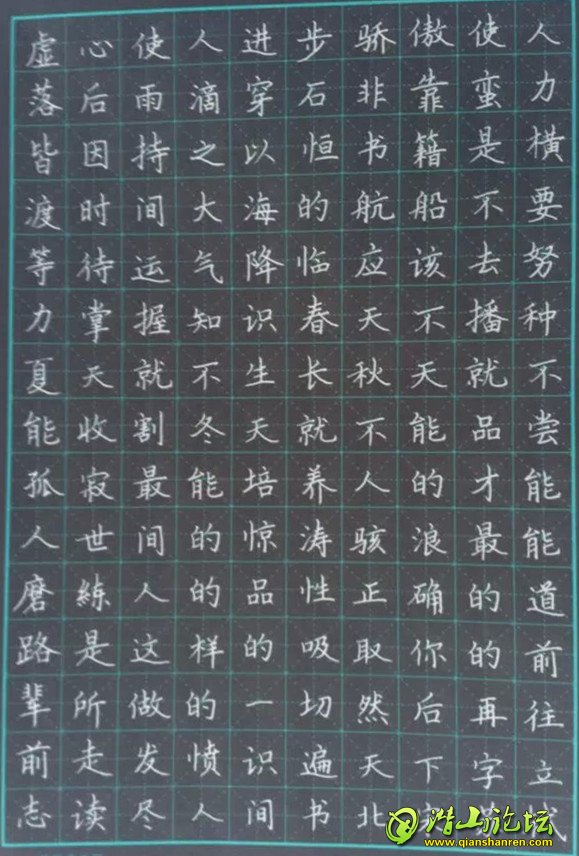 虚心使人进步骄傲使人
落后雨滴穿石非靠蛮力
皆因持之以恒书籍是横
渡时间大海的航船不要
等待运气降临应该去努
力掌握知识春天不播种
夏天就不生长秋天就不
能收割冬天就不能品尝
孤寂最能培养人的才能
人世间的惊涛骇浪最能
磨练人的品性正确的道
路是这样的吸取你的前
辈所做的一切然后再往
前走发愤识遍天下字立
志读尽人间书北
浮山论坛
www.qianshanren.com